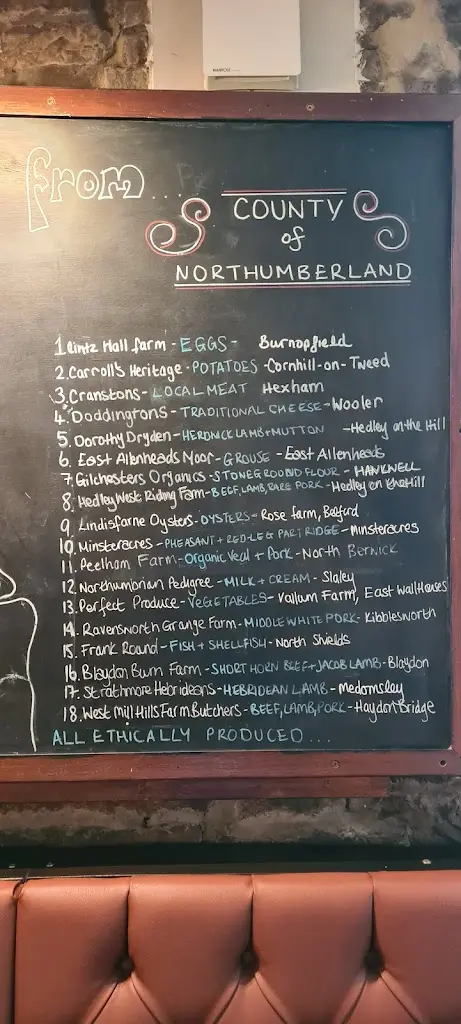 from...
COUNTY
of
NORTHUMBERLAND
1 Lintz Hall farm - EGGS - Burnopfield
2. Carroll's Heritage - POTATOES - Cornhill-on-Tweed
3. Cranstons - LOCAL MEAT Hexham
4. Doddingtons - TRADITIONAL CHEESE - Wooler
5. Dorothy Dryden - HERDWICK LAMB + MUTTON - Hedley on the Hill
6. East Allenheads Moor - GROUSE - East Allenheads
7. Gilchesters Organics - STONEGROUND FLOUR - HAWKWELL
8. Hedley West Riding Farm - BEEF, LAMB, RARE PORK - Hedley on the Hill
9. Lindisfarne Oysters - OYSTERS - Rose farm, Belford
10. Minsteracres - PHEASANT + RED-LEG PARTRIDGE - Minsteracres
11. Peelham Farm - Organic Veal + Pork - North Berwick
12. Northumbrian Pedigree - MILK + CREAM - Slaley
13. Perfect Produce - VEGETABLES - Vallum Farm, East Wallhouses
14. Ravensworth Grange Farm - MIDDLE WHITE PORK - Kibblesworth
15. Frank Round - FISH + SHELLFISH - North Shields
16. Blaydon Burn Farm - SHORT HORN BEEF + JACOB LAMB - Blaydon
17. Strathmore Hebrideans - HEBRIDEAN LAMB - Medomsley
18. West Mill Hills Farm Butchers - BEEF, LAMB, PORK - Haydon Bridge
ALL ETHICALLY PRODUCED...